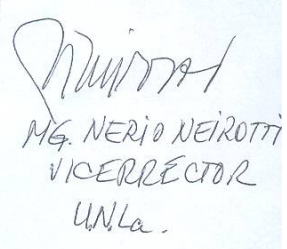 MG. NERIO NEIROTTI
VICERRECTOR
U.N.La.